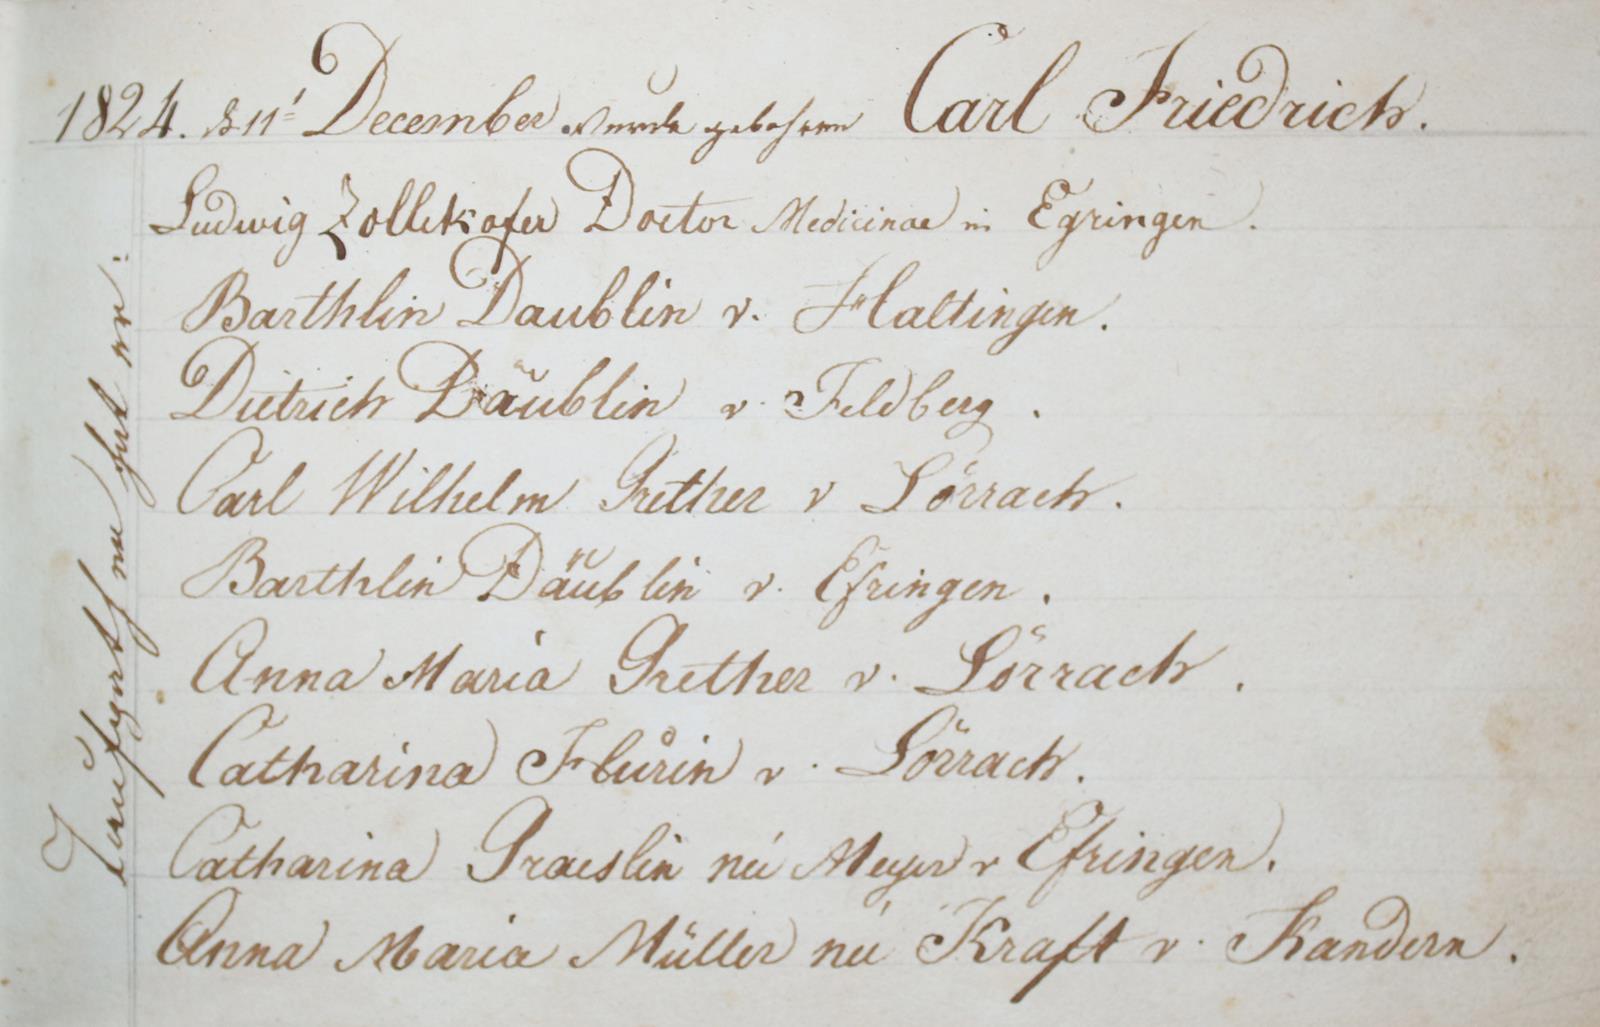 1824. d 11' December wurde gebohren Carl Friedrich.
Ludwig Zollikofer Doctor Medicinae in Egringen.
Barthlin Daublin v. Haltingen.
Dietrich Däublin v. Feldberg.
Carl Wilhelm Grether v Lörrach.
Barthlin Däublin v. Efringen.
Anna Maria Grether v. Lörrach.
Catharina Flurin v. Lörrach.
Catharina Graeslin né Meyer v Efringen.
Anna Maria Müller né Kraft v. Kandern.
hat er: